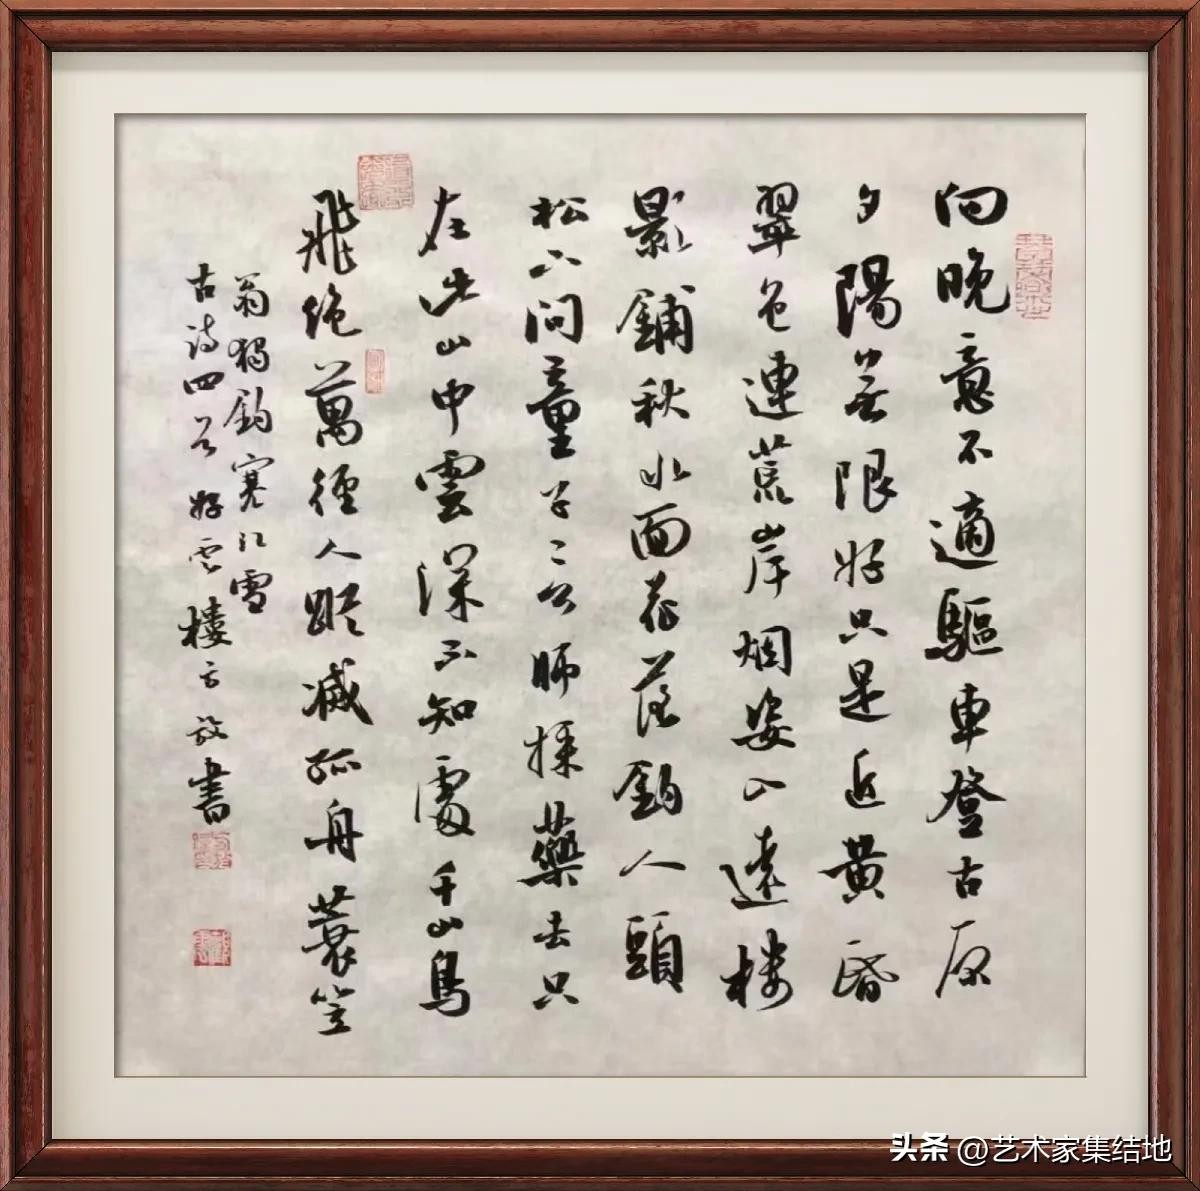 向晚意不適驅車登古原
夕陽無限好只是近黄昏
翠色連荒岸烟姿入遠楼
影鋪秋水面花落釣人頭
松下问童子二言師採藥去只
在此山中雲深不知處千山鳥
飛绝萬徑人踪滅孤舟蓑笠
翁獨釣寒江雪
古诗四首 好雲樓主 放書
头条 @艺术家集结地